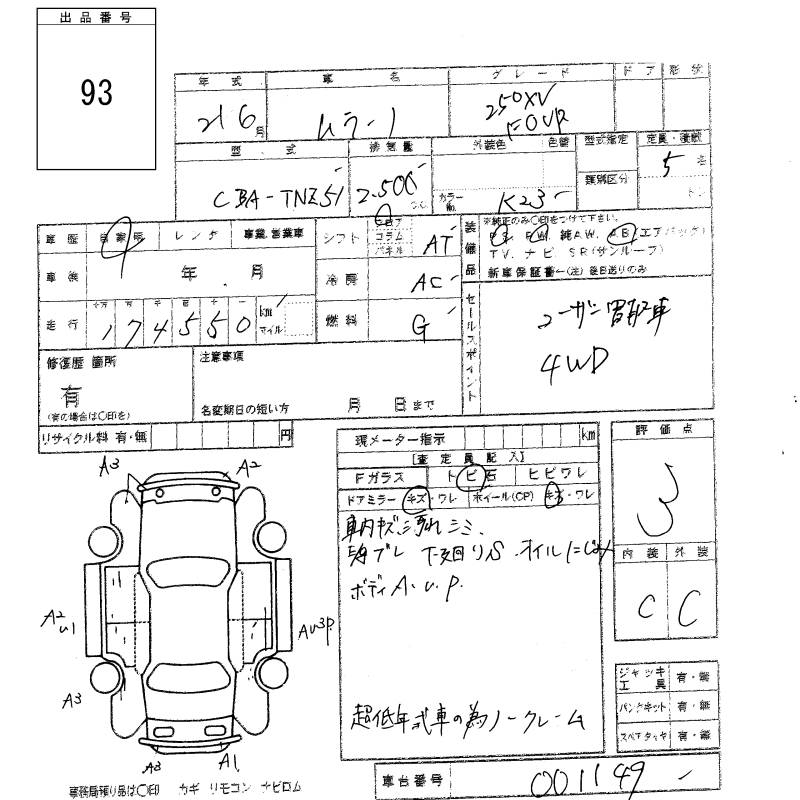 出品番号
93
年式 車名 グレード ドア 形状
21 6月 ムラーノ 250XV FOUR
型式 排気量 外装色 色替 型式指定 定員・積載
CBA-TNZ51 2.500 cc カラーNo. K23 類別区分 5名 トン
車歴 自家用 レンタ 事業.営業車 シフト フロア コラム パネル AT 装備品 ※純正のみ〇印をつけて下さい。
PS. PW. 純AW. AB(エアバッグ)
TV. ナビ SR(サンルーフ)
新車保証書←(注) 後日送りのみ
車検 年 月 冷房 AC
走行 十万 万 千 百 十 一 174550 km マイル 燃料 G
セールスポイント
ユーザー買取車
4WD
修復歴 箇所
有
(有の場合は〇印を)
注意事項
名変期日の短い方 月 日まで
リサイクル料 有・無 円
現メーター指示 km
【査定員記入】
Fガラス トビ石 ヒビワレ
ドアミラー キズ・ワレ ホイール(CP) キズ・ワレ
車内キズ汚れシミ.
下廻りS.オイルにじみ
ボディA.U.P.
超低年式車の為ノークレーム
評価点
3
内装 外装
C C
ジャッキ 工具 有・無
パンクキット 有・無
スペアタイヤ 有・無
A3 A2
A2
U1
AU3P.
A3
A3 A1
事務局預り品は〇印 カギ リモコン ナビロム
車台番号 001149